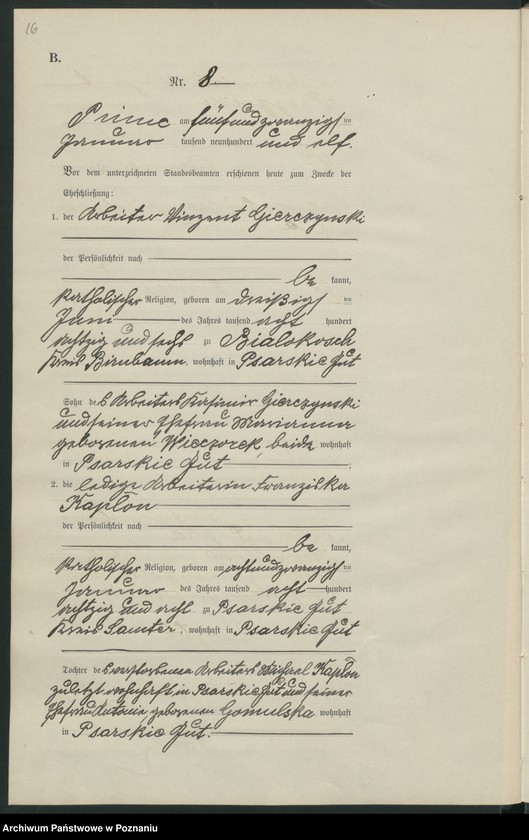 16
B.
Nr. 8.
Pinne am fünfundzwanzigsten
Januar tausend neunhundert und elf.
Vor dem unterzeichneten Standesbeamten erschienen heute zum Zwecke der
Eheschließung:
1. der Arbeiter Vinzent Gierczynski
der Persönlichkeit nach
be kannt,
katholischer Religion, geboren am dreißigsten
Juni des Jahres tausend acht hundert
achtzig und sechs zu Bialokosch
Kreis Birnbaum, wohnhaft in Psarskie Gut
Sohn des Arbeiters Kasimir Gierczynski
und seiner Ehefrau Marianna
geborenen Wieczorek, beide wohnhaft
in Psarskie Gut ;
2. die ledige Arbeiterin Franziska
Kaplon
der Persönlichkeit nach
be kannt,
katholischer Religion, geboren am achtundzwanzigsten
Januar des Jahres tausend acht hundert
achtzig und acht zu Psarskie Gut
Kreis Samter, wohnhaft in Psarskie Gut
Tochter des verstorbenen Arbeiters Michael Kaplon
zuletzt wohnhaft in Psarskie Gut und seiner
Ehefrau Antonie geborenen Gomulska wohnhaft
in Psarskie Gut.
Archiwum Państwowe w Poznaniu